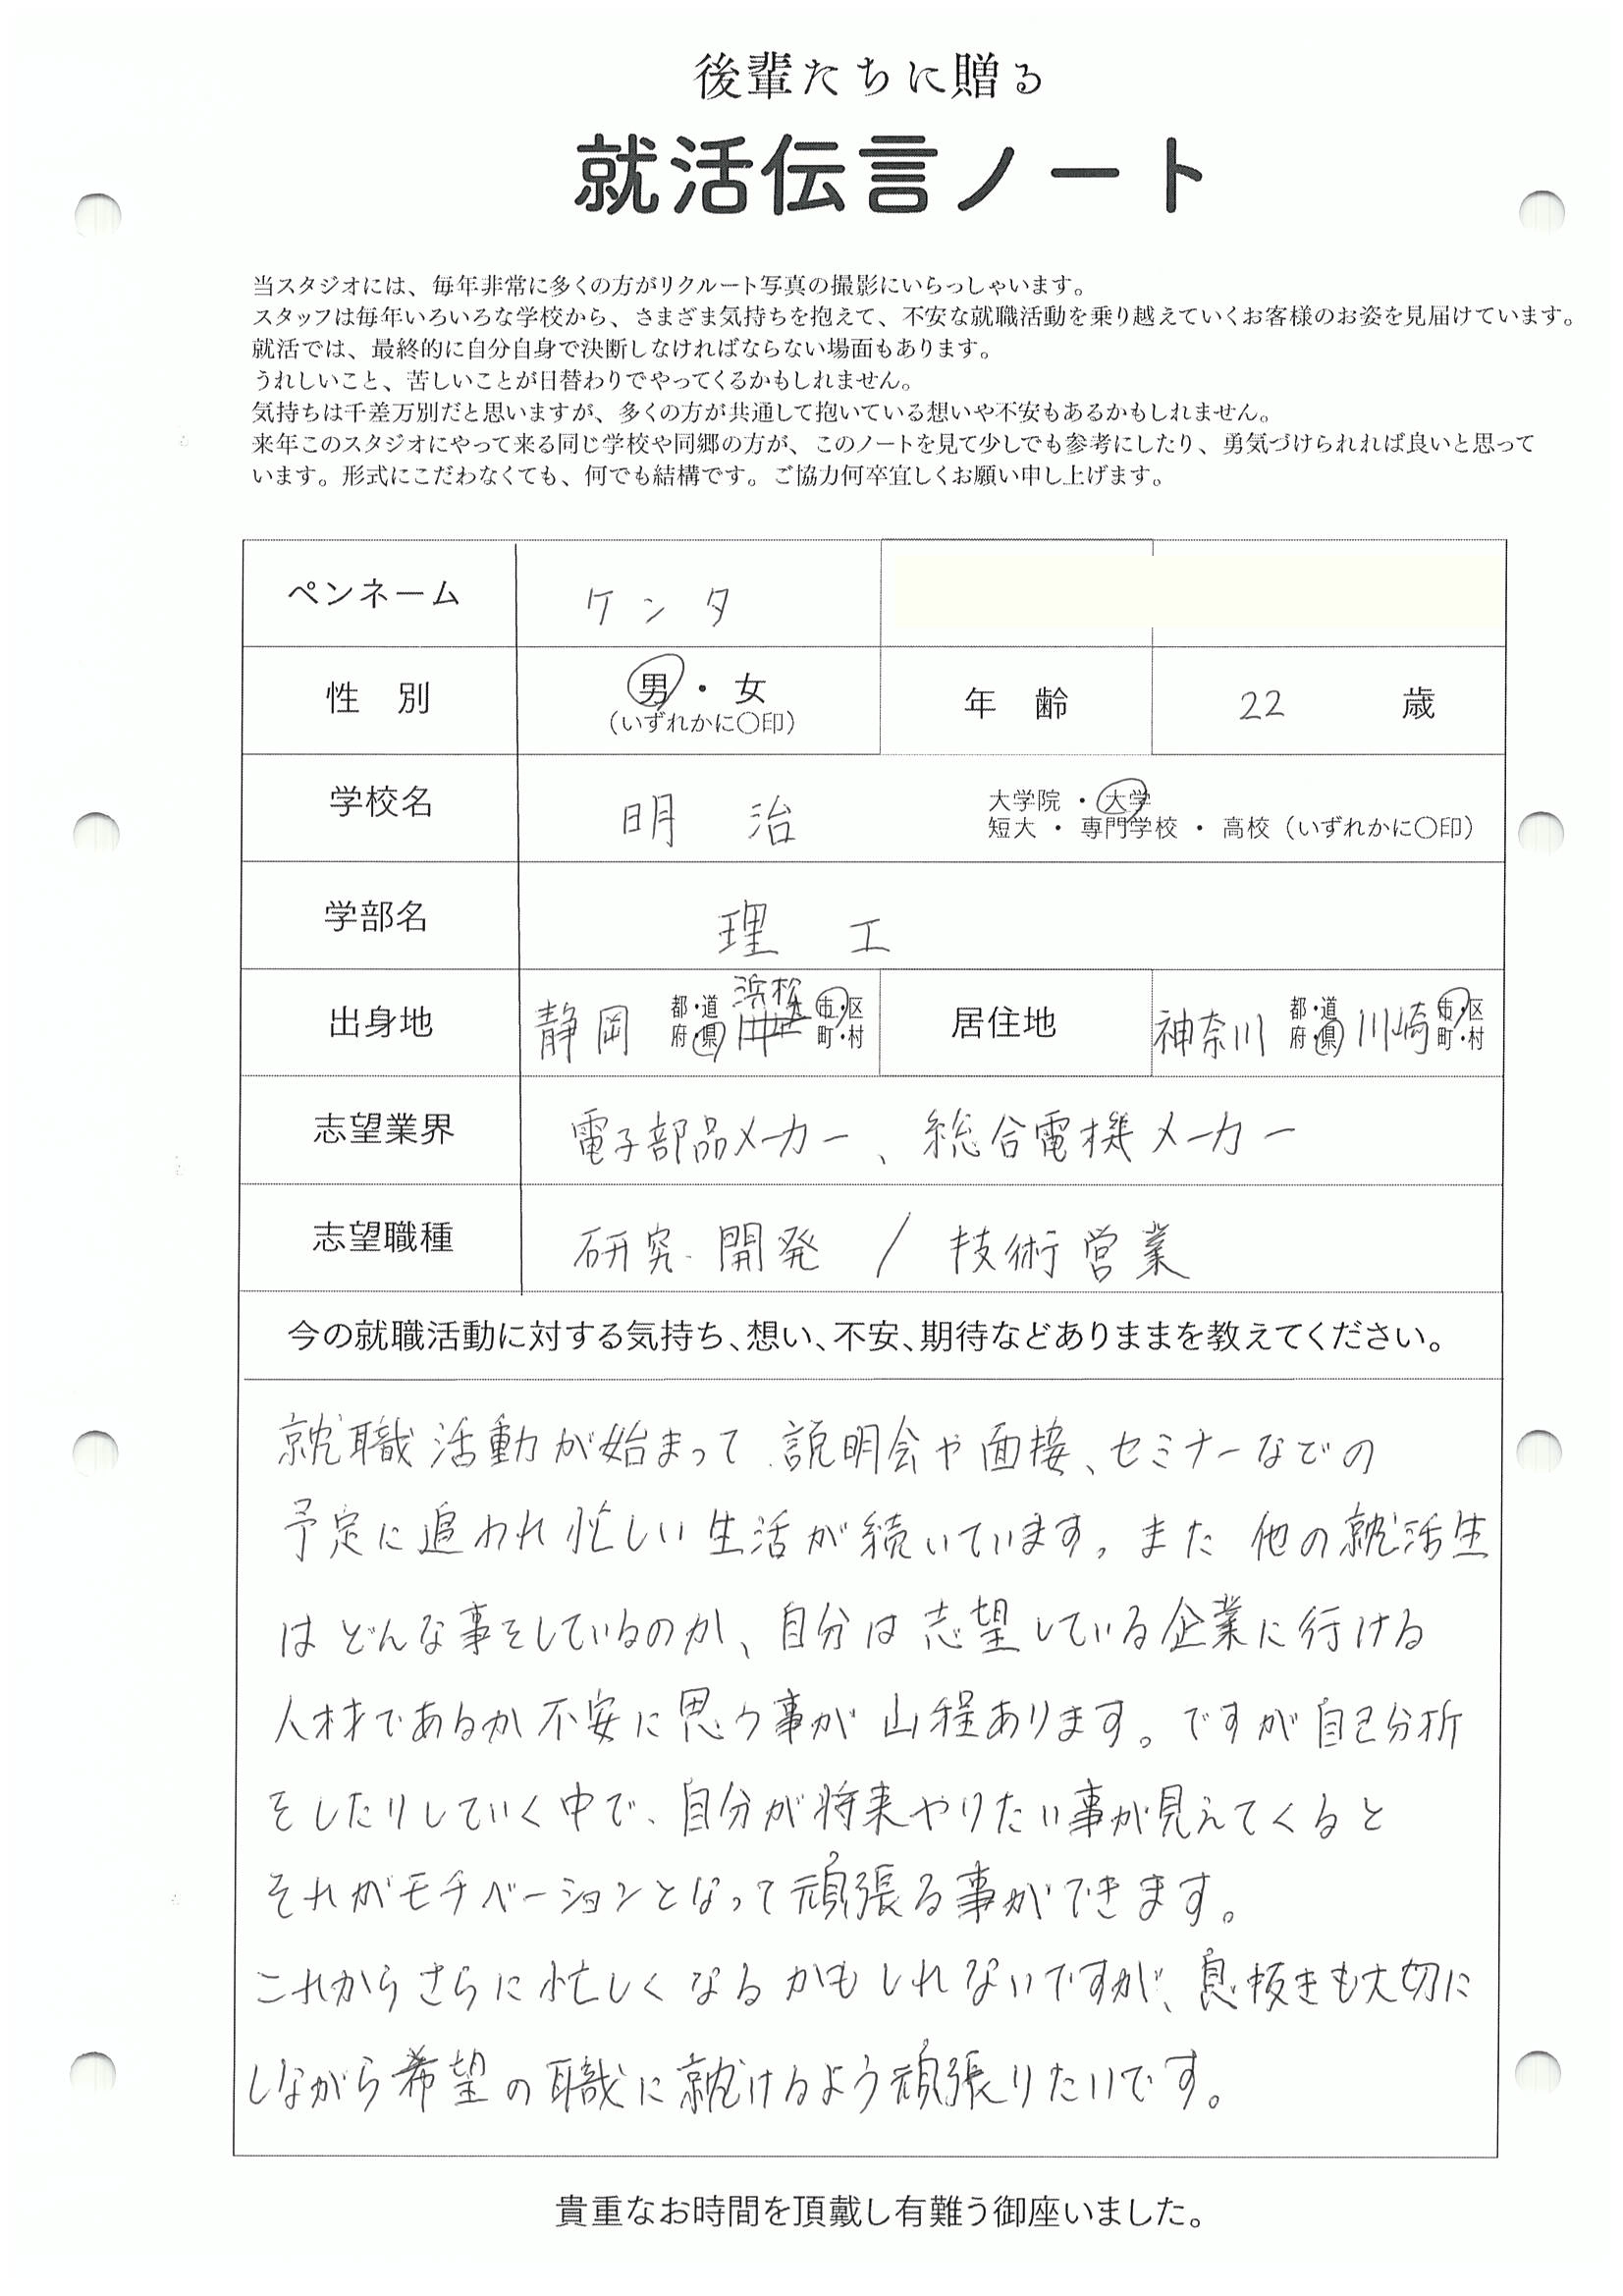 後輩たちに贈る
就活伝言ノート
当スタジオには、毎年非常に多くの方がリクルート写真の撮影にいらっしゃいます。
スタッフは毎年いろいろな学校から、さまざま気持ちを抱えて、不安な就職活動を乗り越えていくお客様のお姿を見届けています。
就活では、最終的に自分自身で決断しなければならない場面もあります。
うれしいこと、苦しいことが日替わりでやってくるかもしれません。
気持ちは千差万別だと思いますが、多くの方が共通して抱いている想いや不安もあるかもしれません。
来年このスタジオにやって来る同じ学校や同郷の方が、このノートを見て少しでも参考にしたり、勇気づけられれば良いと思って
います。形式にこだわなくても、何でも結構です。ご協力何卒宜しくお願い申し上げます。
ペンネーム ケンタ
性 別 男・女 (いずれかに〇印) 年 齢 22 歳
学校名 明治 大学院・大学
短大・専門学校・高校(いずれかに〇印)
学部名 理工
出身地 静岡 都・道 府・県 浜松 市・区 町・村 居住地 神奈川 都・道 府・県 川崎 市・区 町・村
志望業界 電子部品メーカー、総合電機メーカー
志望職種 研究・開発 / 技術営業
今の就職活動に対する気持ち、想い、不安、期待などありままを教えてください。
就職活動が始まって、説明会や面接、セミナーなどの
予定に追われ忙しい生活が続いています。また他の就活生
はどんな事をしているのか、自分は志望している企業に行ける
人材であるか不安に思う事が山程あります。ですが自己分析
をしたりしていく中で、自分が将来やりたい事が見えてくると
それがモチベーションとなって頑張る事ができます。
これからさらに忙しくなるかもしれないですが、息抜きも大切に
しながら希望の職に就けるよう頑張りたいです。
貴重なお時間を頂戴し有難う御座いました。